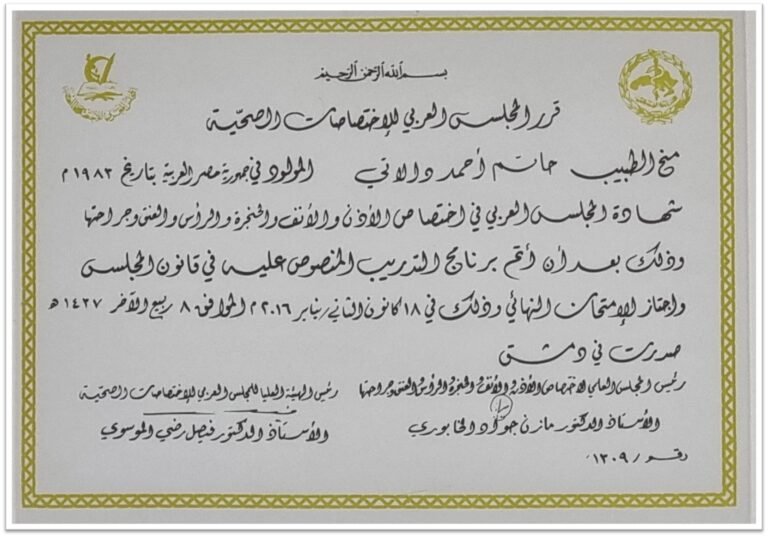 بسم الله الرحمن الرحيم
قرر المجلس العربي للاختصاصات الصحيّة
منح الطبيب حاتم أحمد دالاتي المولود في جمهورية مصر العربية بتاريخ ١٩٨٢ م
شهادة المجلس العربي في اختصاص الأذن والأنف والحنجرة والرأس والعنق وجراحتها
وذلك بعد أن أتم برنامج التدريب المنصوص عليه في قانون المجلس
واجتاز الامتحان النهائي وذلك في ١٨ كانون الثاني/يناير ٢٠١٦ م الموافق ٨ ربيع الآخر ١٤٣٧ هـ
صدرت في دمشق
رئيس المجلس العلمي لاختصاص الأذن والأنف والحنجرة والرأس والعنق وجراحتها رئيس الهيئة العليا للمجلس العربي للاختصاصات الصحية
الأستاذ الدكتور مازن جواد الخابوري الأستاذ الدكتور فيصل رضي الموسوي
رقم /١٣٠٩/